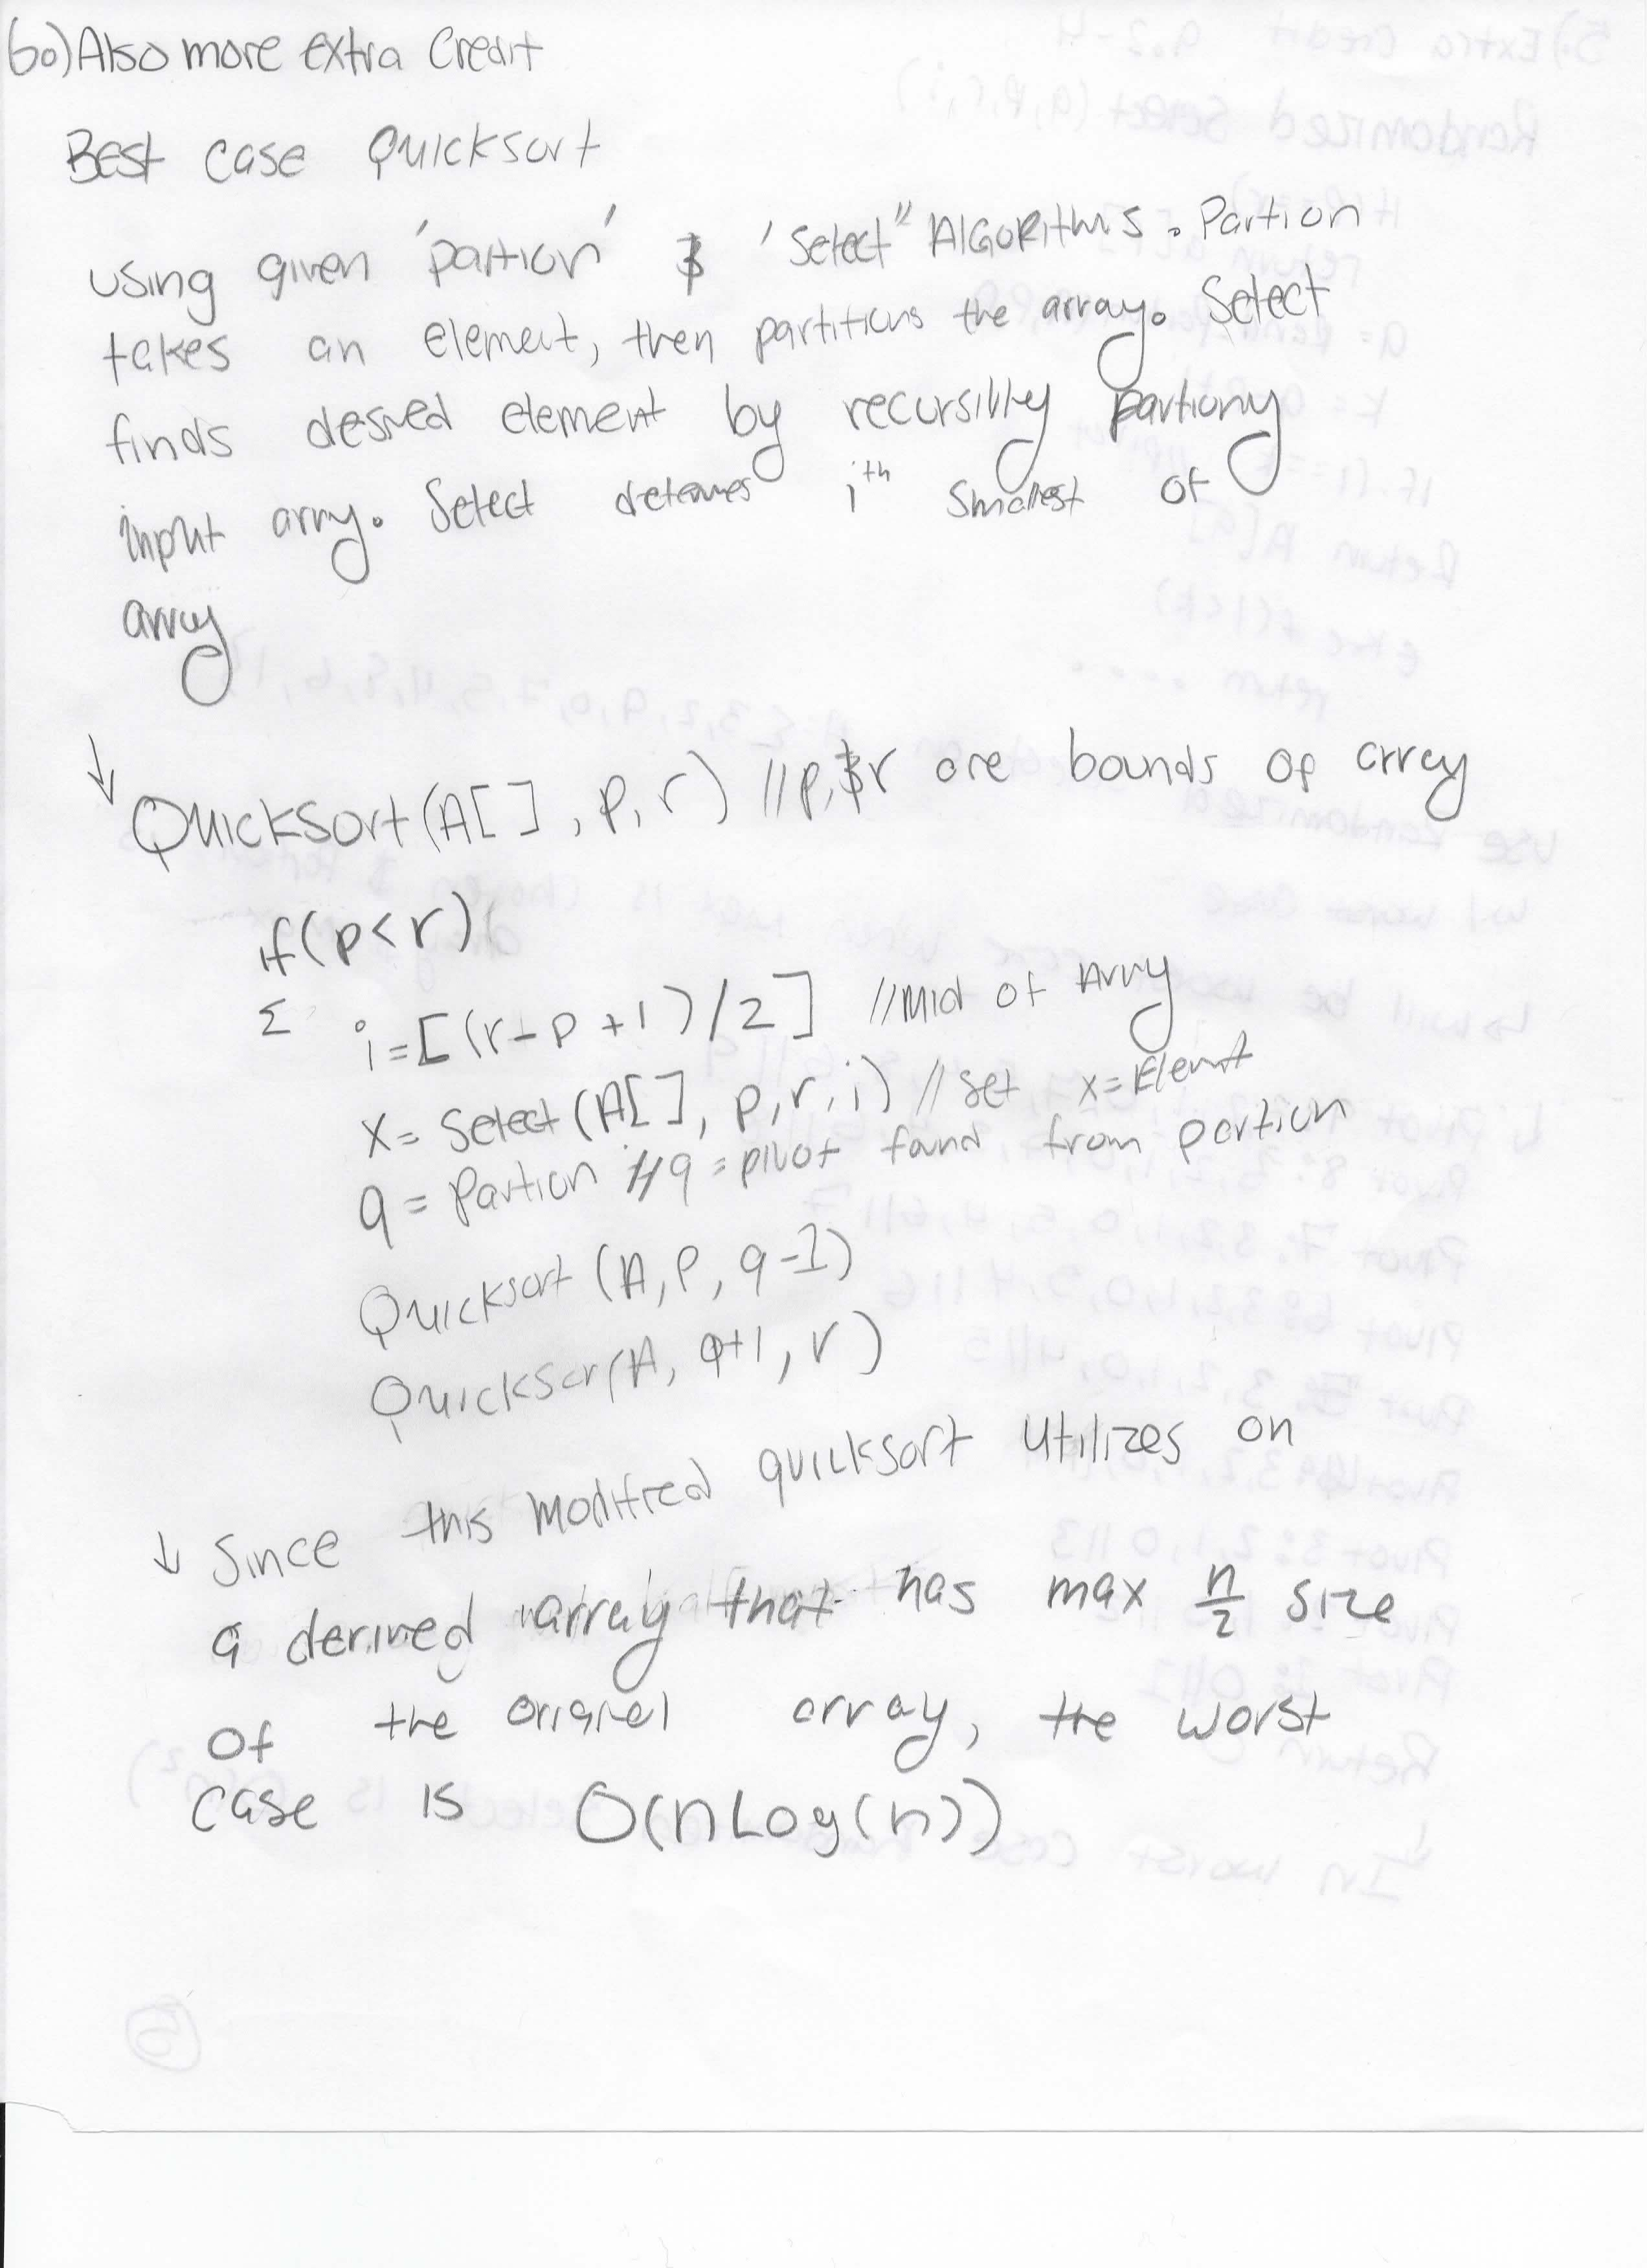 6.) Also more extra Credit
Best case Quicksort
using given 'partion' & 'Select" ALGORIthms. Partion
takes an element, then partitions the array. Select
finds desired element by recursivlly partiony
input arry. Select determes ith smallest of
array
↓ Quicksort(A[], p, r) //p,&r are bounds of array
if(p<r)
{ i=[(r-p+1)/2] //Mid of Array
x= Select (A[], p,r,i) //set x= Elemt
q= Partion //q=pivot found from partion
Quicksort (A, P, q-1)
Quicksor(A, q+1, r)
↓ Since this modified quicksort utilizes on
a derived array that has max n/2 size
of the original array, the worst
case is O(nLog(n))